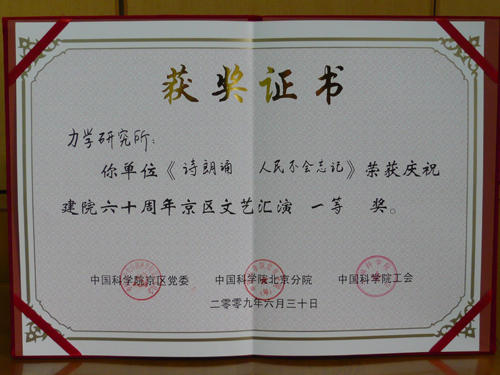 获奖证书
力学研究所：
你单位《诗朗诵 人民不会忘记》荣获庆祝
建院六十周年京区文艺汇演 一等 奖。
中国科学院京区党委 中国科学院北京分院 中国科学院工会
二零零九年六月三十日